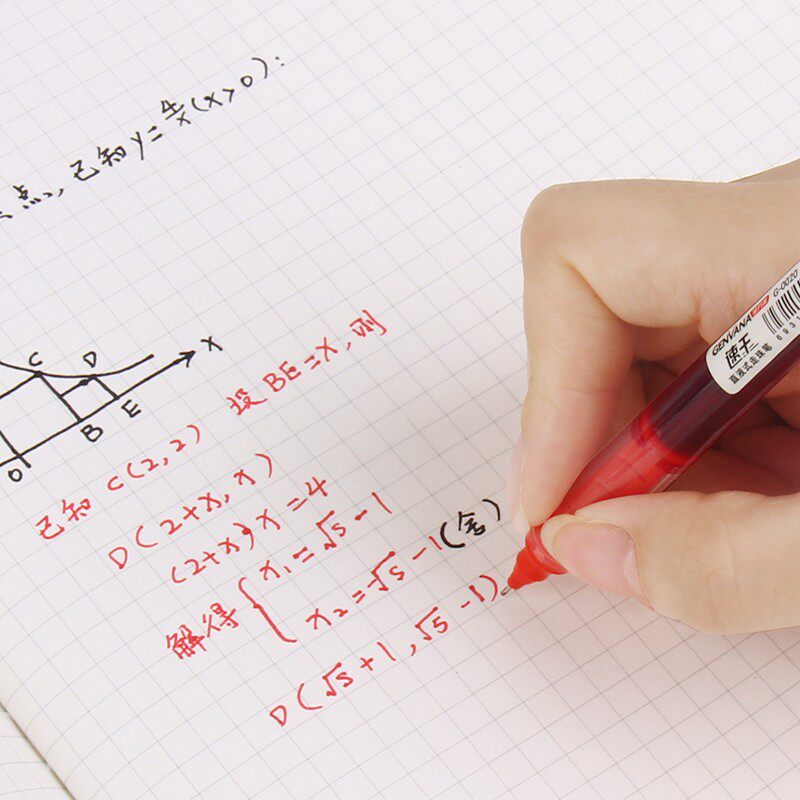 点,已知y=4/x(x>0):
C D x
O B E
设BE=x,则
已知 C(2,2)
D(2+x,x)
(2+x)·x=4
解得 { x₁=√5-1
x₂=-√5-1(舍)
D(√5+1,√5-1)
GENVANA
速王
直液式走珠笔
G-0020
693